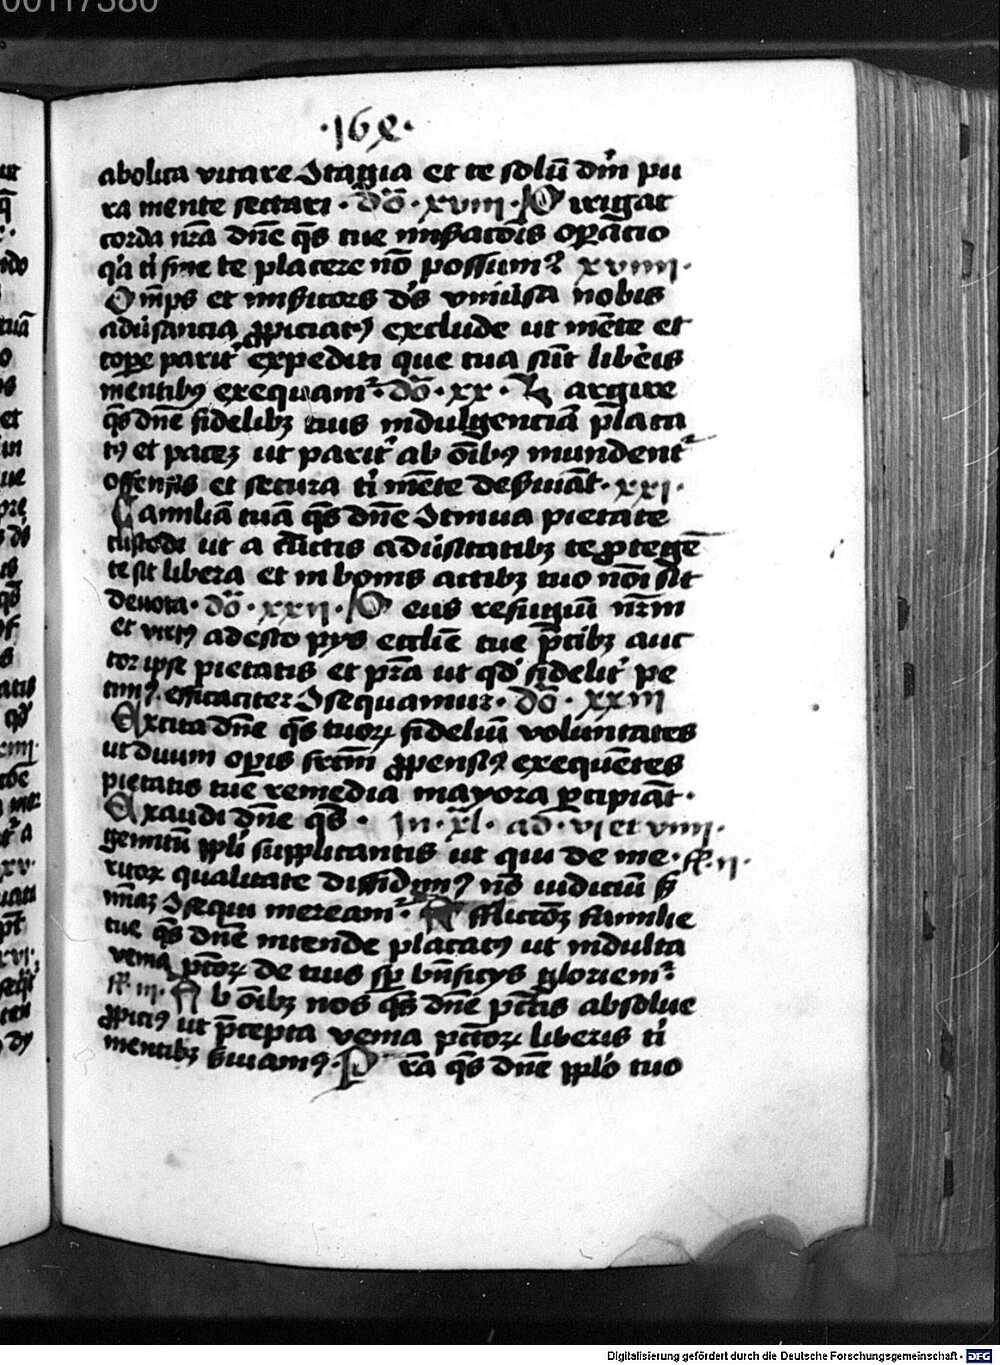 ·168·
abolica vitare ꝯtagia et te solū dm̄ pu
ra mente sectari · dō · xviii · Dirigat
corda nr̄a dn̄e q̄s tue miseratōis operatio
q̓a ti sine te placere nō possum⁹ xviiii ·
Om̄ps et misicors ds̄ vniūsa nobis
adūsancia ꝓpiciat⁹ exclude ut mēte et
corpe parit̓ expediti que tua sūt liberis
mentib⁹ exequam̓ · dō · xx · Largire
q̄s dn̄e fidelibꝫ tuis indulgenciā placa
t⁹ et paceꝫ ut parit̓ ab oīb⁹ mundent̓
offensis et secura ti mēte deseruiāt · xxi ·
Familiā tuā q̄s dn̄e ꝯtinua pietate
custodi ut a cūctis adūsitatibꝫ te ꝓtegē
te sit libera et in bonis actibꝫ tuo nōi sit
deuota · dō · xxii · Deus refugiū nr̄m
et virt⁹ adesto pys eccl̄ie tue p̄cibꝫ auc
tor ipse pietatis et p̄ra ut qd̓ fidelit̓ pe
tim⁹ efficaciter ꝯsequamur · dō · xxiii
Excita dn̄e q̄s tuoꝝ fideliū voluntates
ut diuini operis frc̄m ꝓpensi⁹ exequētes
pietatis tue remedia mayora ꝑcipiāt ·
Exaudi dn̄e q̄s · In · xl · ad · vi et viiii ·
gemitū ppl̄i supplicantis ut qui de me · fr̄ · ii ·
ritoꝝ qualitate diffidim⁹ nō iudiciū sꝫ
mīaꝫ ꝯsequi meream̓ · Afflictōꝫ familie
tue q̄s dn̄e intende placat⁹ ut indulta
venia pc̄toꝝ de tuis sp̄ bn̄ficys gloriem̓ ·
fr̄ · iii · Ab oīibꝫ nos q̄s dn̄e pc̄tis absolue
ꝓpici⁹ ut p̄cepta venia pc̄toꝝ liberis ti
mentibꝫ seruiam⁹ · Pra q̄s dn̄e pplo tuo
Digitalisierung gefördert durch die Deutsche Forschungsgemeinschaft - DFG